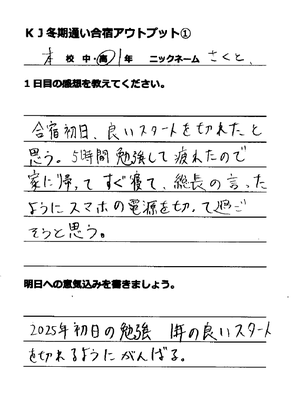 KJ冬期通い合宿アウトプット①
本 校 中・高 1年 ニックネーム さくと、
1日目の感想を教えてください。
合宿初日、良いスタートを切れたと
思う。5時間勉強して疲れたので
家に帰ってすぐ寝て、総長の言った
ようにスマホの電源を切って過ご
そうと思う。
明日への意気込みを書きましょう。
2025年初日の勉強 1年の良いスタート
を切れるようにがんばる。